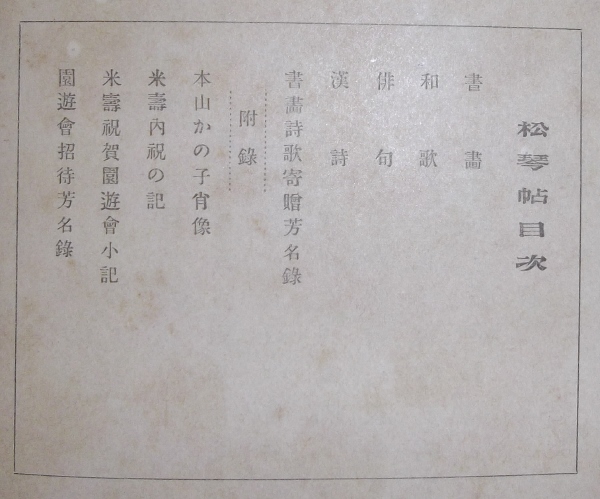 松琴帖目次
書畵
和歌
俳句
漢詩
書畵詩歌寄贈芳名錄
附錄
本山かの子肖像
米壽內祝の記
米壽祝賀園遊會小記
園遊會招待芳名錄